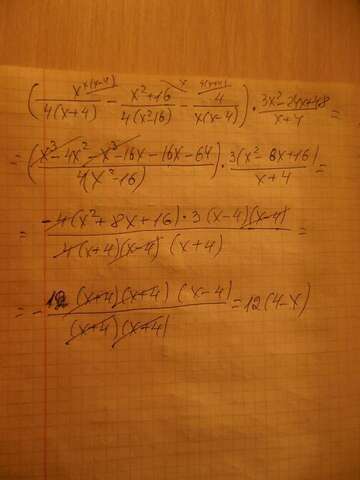 (x^{x(x-4)}/4(x+4) - x²+16^{x}/4(x²16) - 4^{4(x+4)}/x(x-4)) · 3x²-24x+48/x+4 =
= (x³-4x²-x³-16x-16x-64/4(x²-16)) · 3(x²-8x+16)/x+4 =
= -4(x²+8x+16)·3(x-4)(x-4)/4(x+4)(x-4)(x+4) =
= -12(x+4)(x+4)(x-4)/(x+4)(x+4) = 12(4-x)